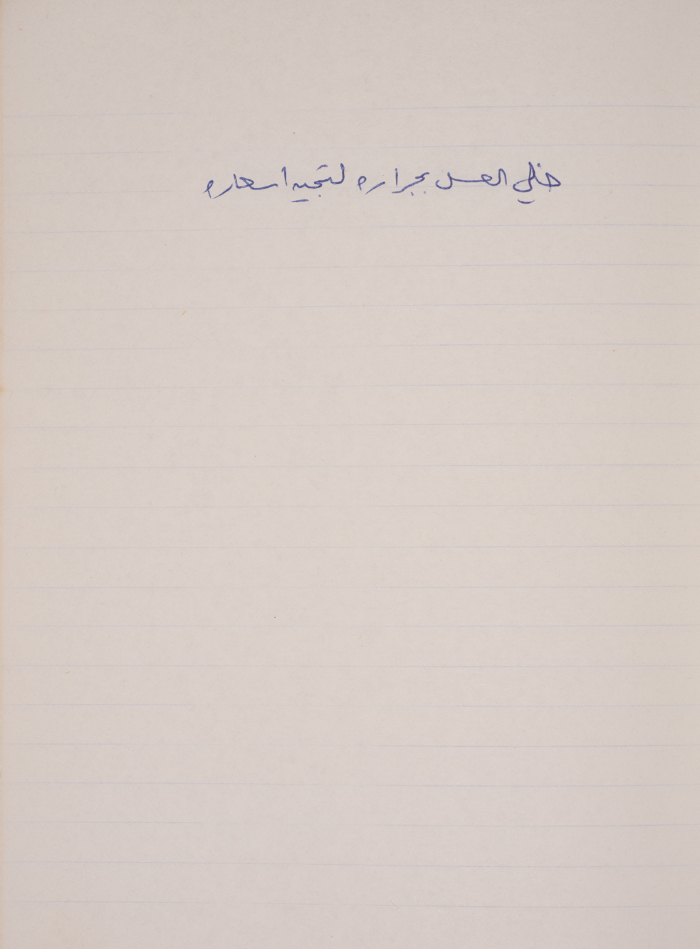 خلي العسل بجراره لتجيه اسعاره